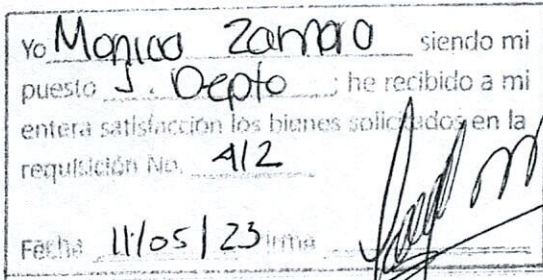 Yo Monica Zamora siendo mi
puesto J. Depto ; he recibido a mi
entera satisfacción los bienes solicitados en la
requisición No. 412
Fecha 11/05/23 Firma